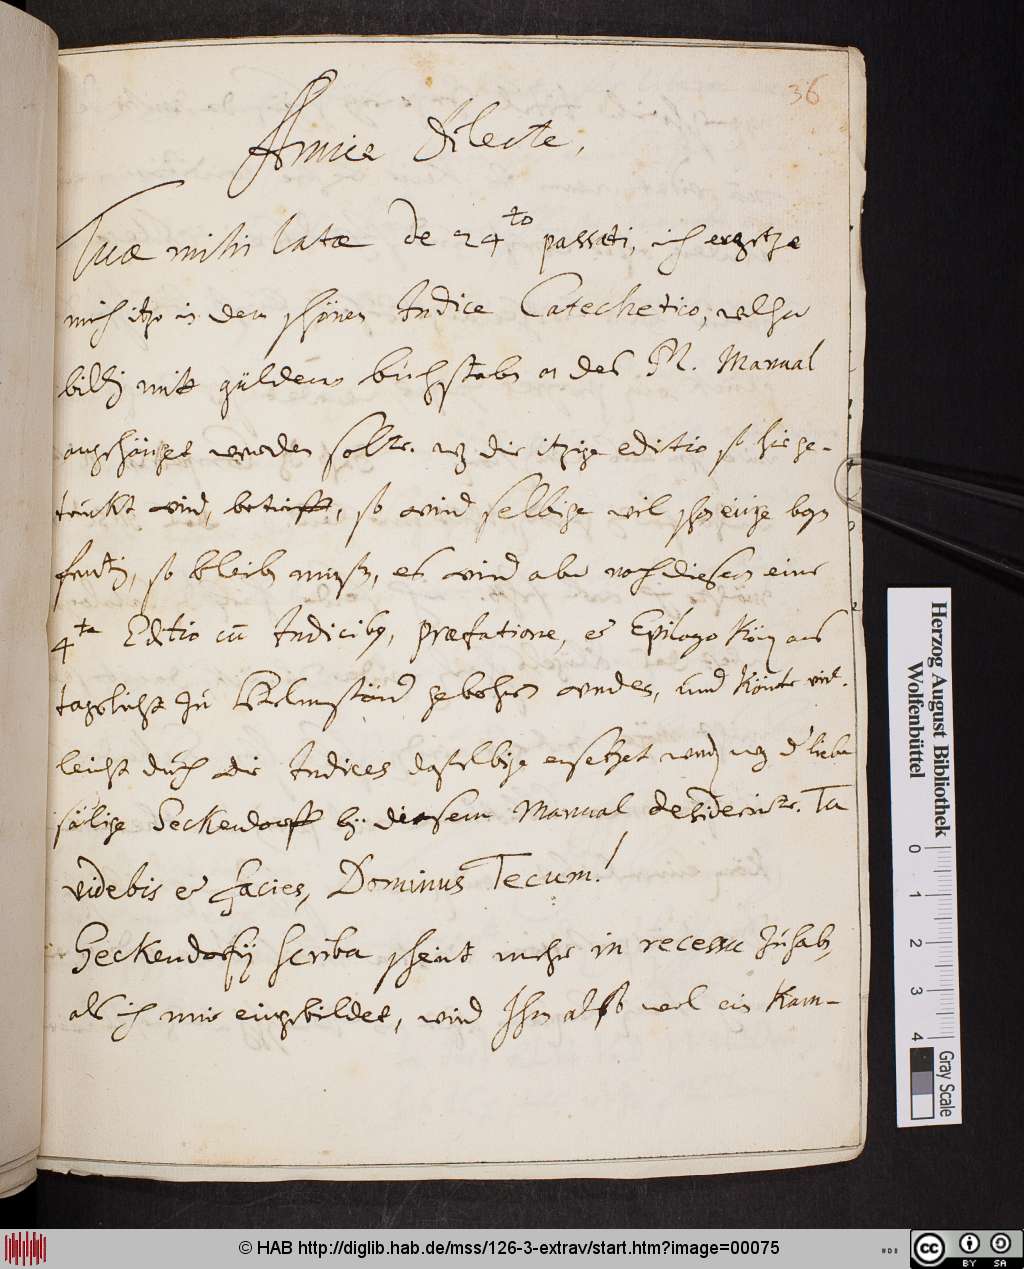 36
Amice dilecte,
Tuae mihi latae de 24to passati, ich ergetze
mich itzo in dem schönen Indice Catechetico, welcher
billich mitt güldenen buchstaben an des M. Manual
angehänget werden solte. wz die itzige editio so hie ge-
trückt wird, betrifft, so wird selbige weil schon einige bogen
fertig, so bleiben müssen, es wird aber nach diesem eine
4te Editio cum Indicibus, praefatione, et Epilogo ans
tageslicht zu Helmstäd gebohren werden, und könte viel-
leicht durch die Indices dasselbige ersetzet werden wz d' liebe
sälige Seckendorff bey diesem Manual desiderirte. Tu
videbis et facies, Dominus Tecum!
Seckendorfij scriba scheint mehr in recessu zuhaben,
als ich mir eingebildet, wird Ihn also wol ein Kam-
Herzog August Bibliothek
Wolfenbüttel
0 1 2 3 4
Gray Scale
© HAB http://diglib.hab.de/mss/126-3-extrav/start.htm?image=00075
CC BY SA